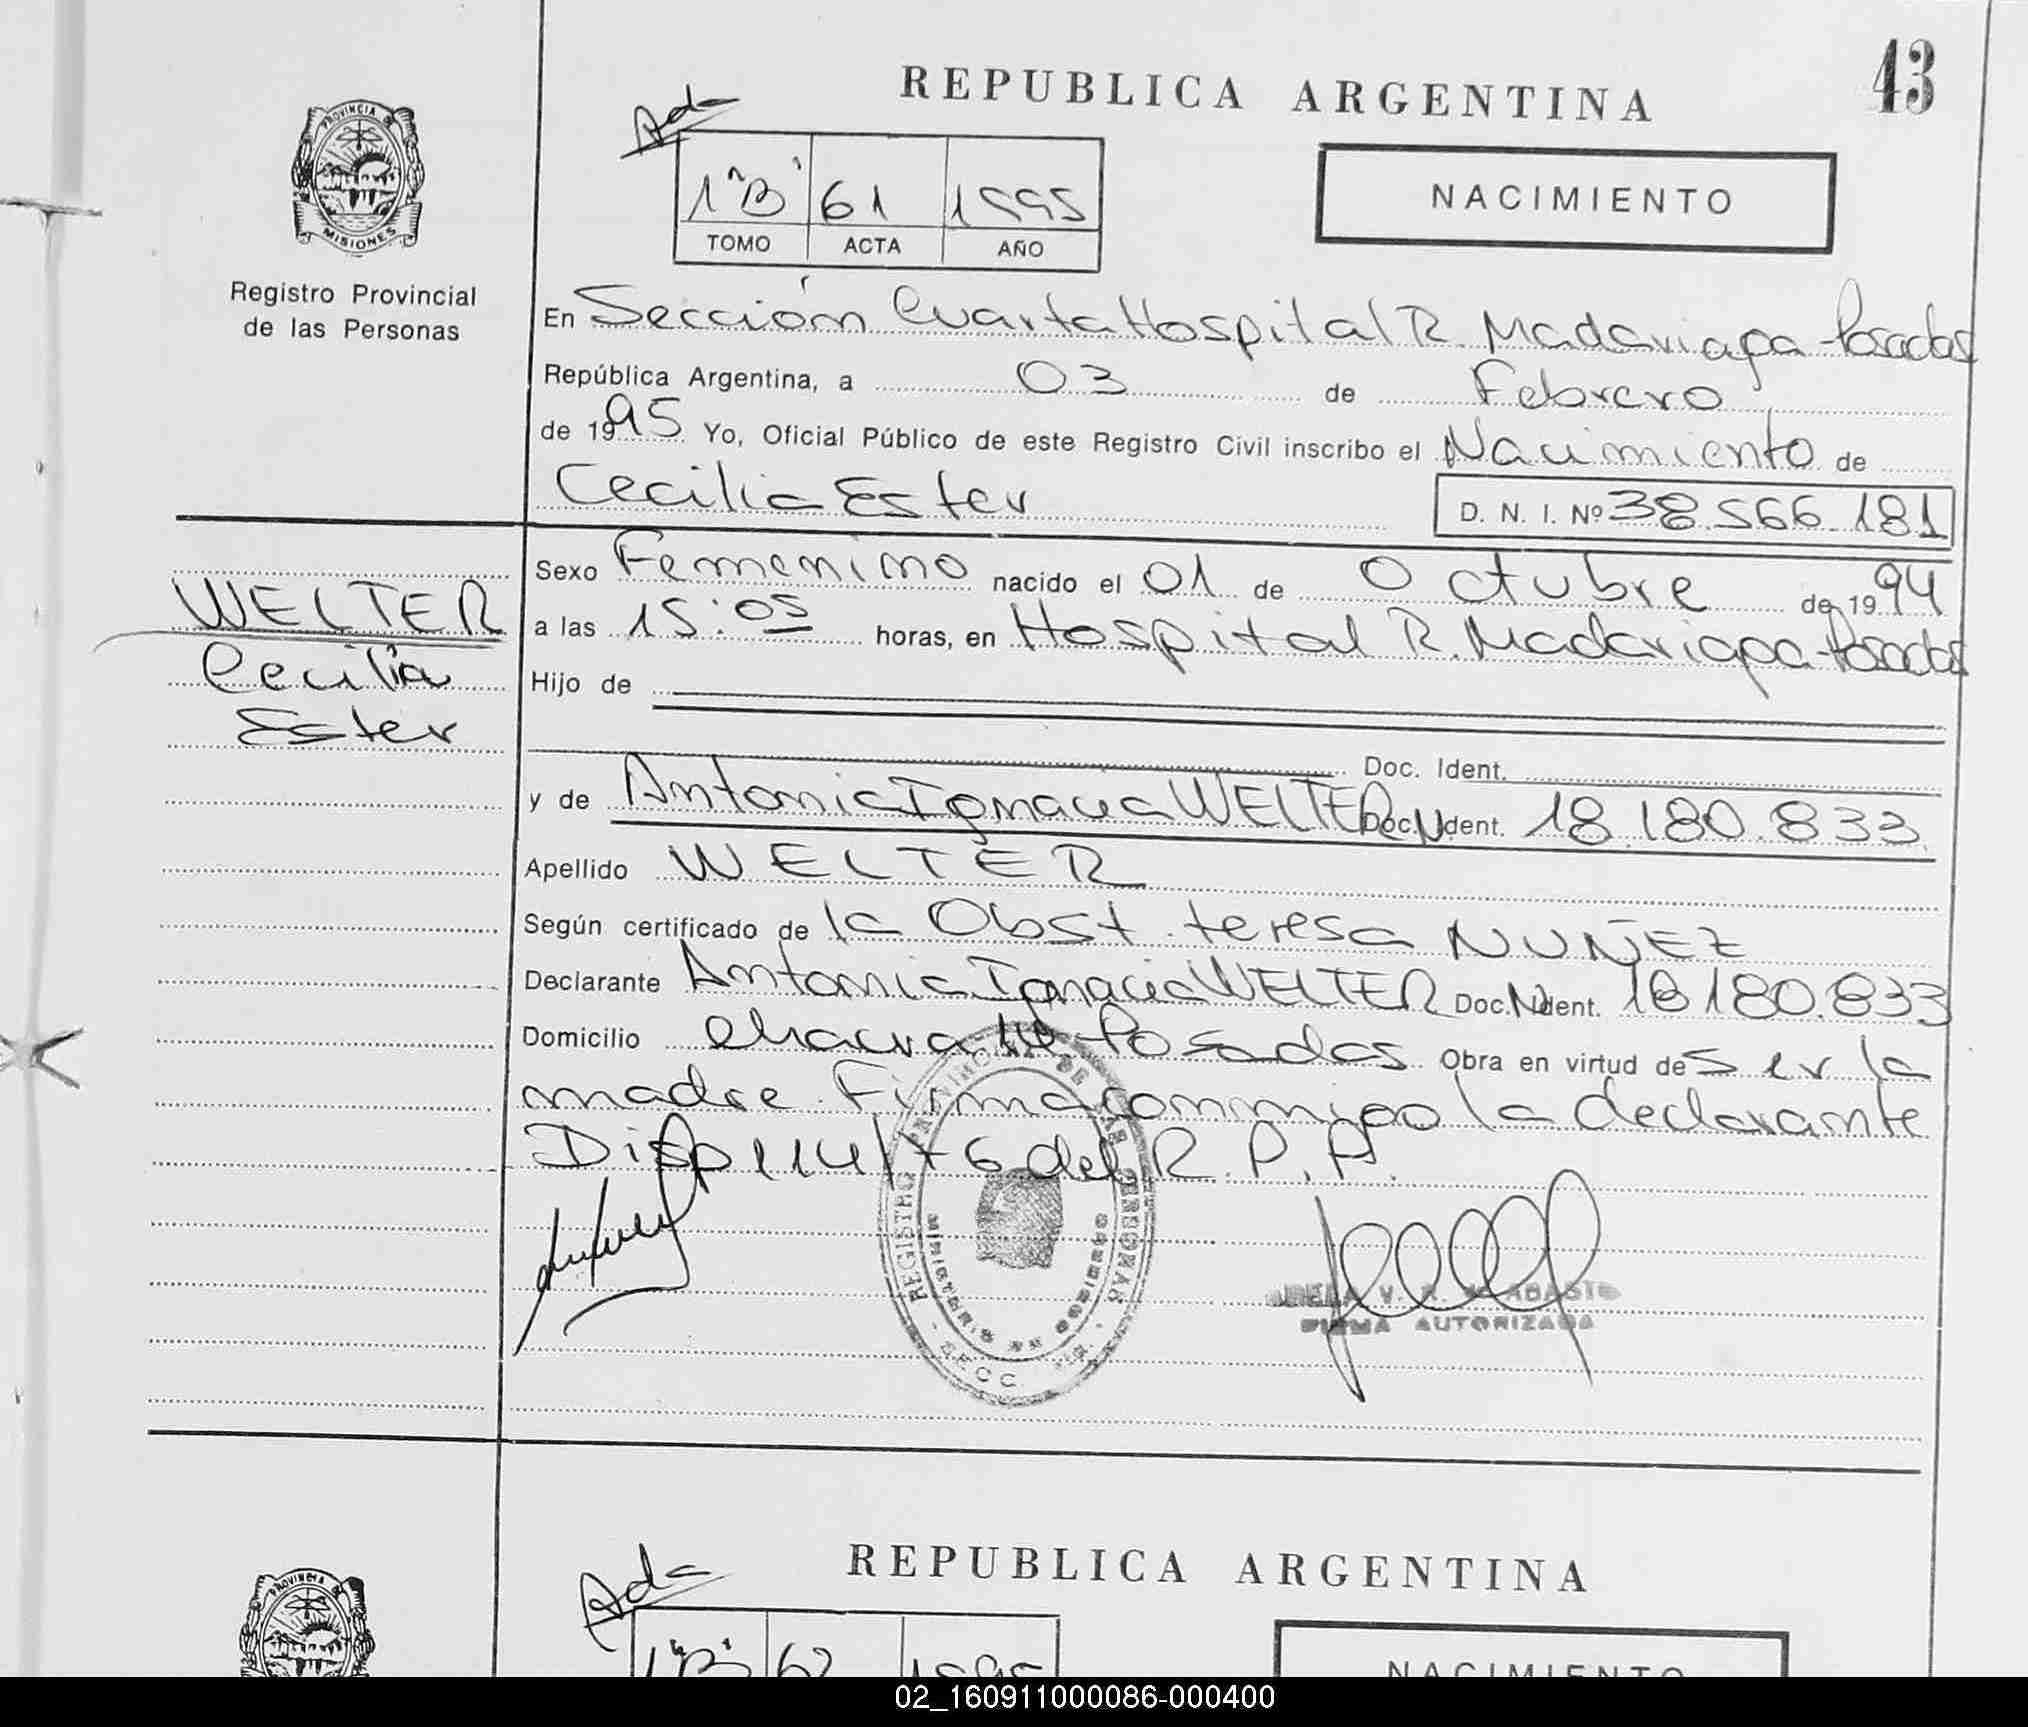 43
REPUBLICA ARGENTINA
Ada
1"B" 61 1995
TOMO ACTA AÑO
NACIMIENTO
PROVINCIA DE
MISIONES
Registro Provincial
de las Personas
En Sección Cuarta Hospital R. Madariaga - Posadas
República Argentina, a 03 de Febrero
de 1995 Yo, Oficial Público de este Registro Civil inscribo el Nacimiento de
Cecilia Ester D. N. I. Nº 38.566.181
WELTER
Cecilia
Ester
Sexo Femenino nacido el 01 de Octubre de 1994
a las 15:05 horas, en Hospital R. Madariaga - Posadas
Hijo de
Doc. Ident.
y de Antonia Ignacia WELTER Doc. Ident. 18.180.833
Apellido WELTER
Según certificado de la Obst. teresa NUÑEZ
Declarante Antonia Ignacia WELTER Doc. Ident. 18.180.833
Domicilio Chacra Posadas Obra en virtud de Ser la
madre. Firma conmigo la declarante
Disp 114/76 del R. P. P.
REGISTRO PROVINCIAL DE LAS PERSONAS
MINISTERIO DE GOBIERNO
SECC.
V. R. ABASTO
FIRMA AUTORIZADA
REPUBLICA ARGENTINA
Ada
1"B" 62 1995
NACIMIENTO
PROVINCIA
02_160911000086-000400